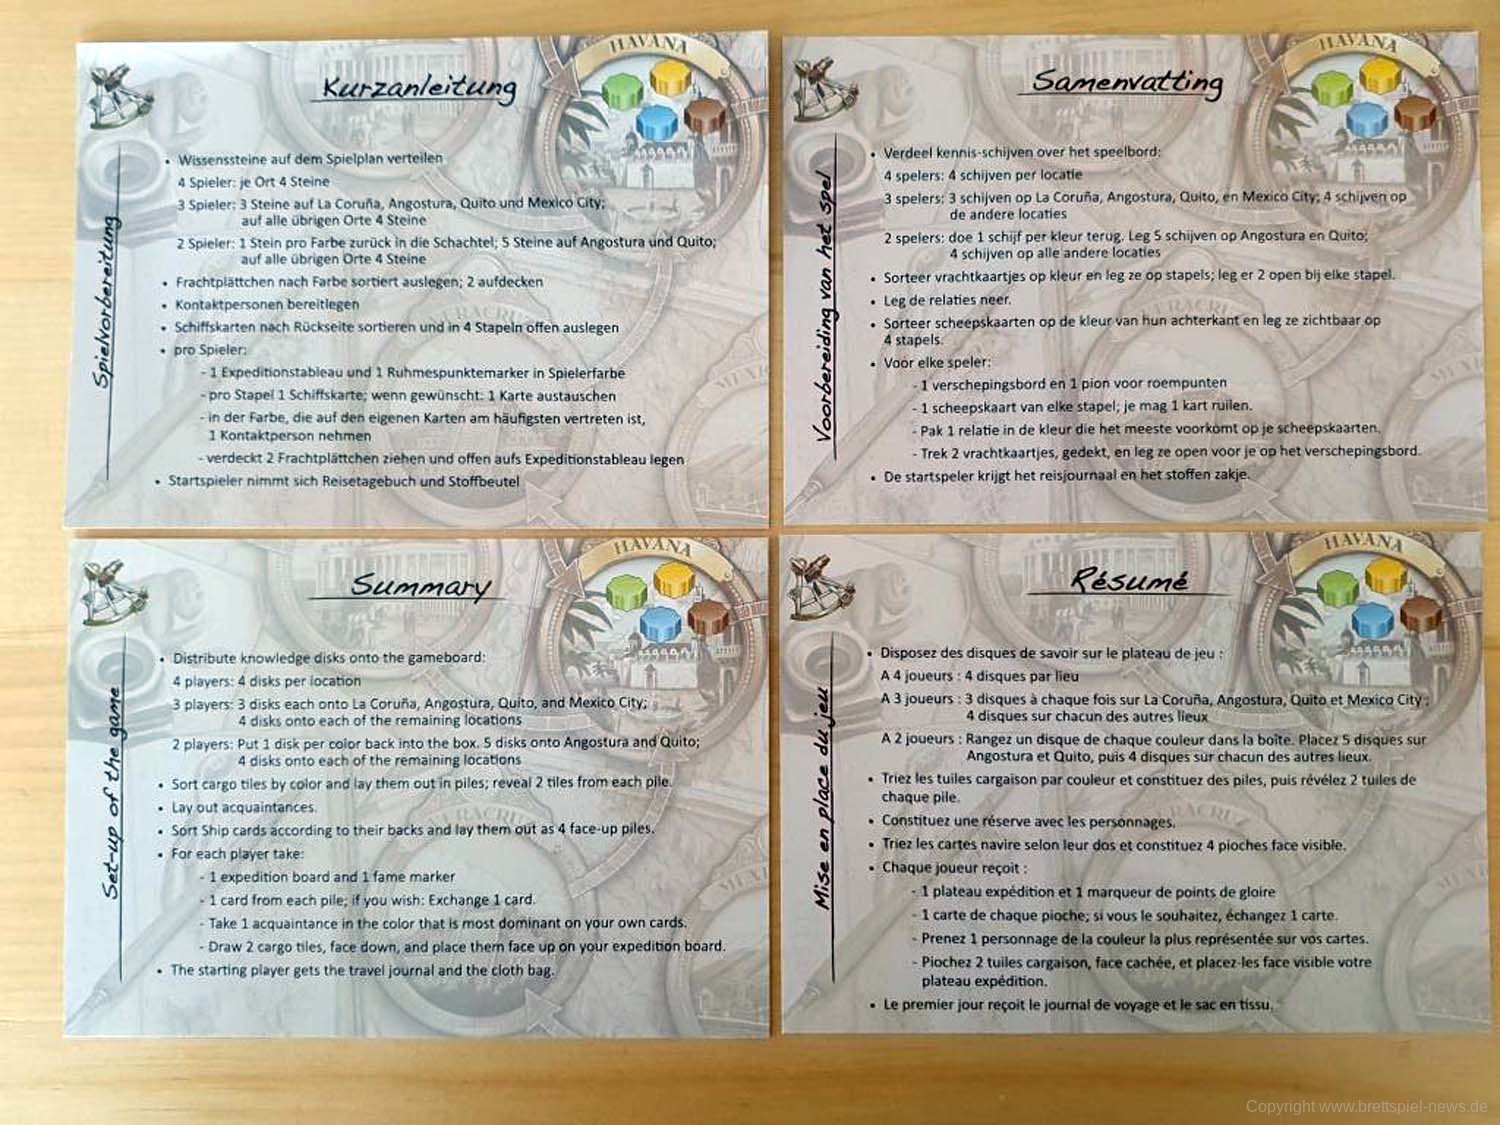 HAVANA
Kurzanleitung
Spielvorbereitung
• Wissenssteine auf dem Spielplan verteilen
4 Spieler: je Ort 4 Steine
3 Spieler: 3 Steine auf La Coruña, Angostura, Quito und Mexico City;
auf alle übrigen Orte 4 Steine
2 Spieler: 1 Stein pro Farbe zurück in die Schachtel; 5 Steine auf Angostura und Quito;
auf alle übrigen Orte 4 Steine
• Frachtplättchen nach Farbe sortiert auslegen; 2 aufdecken
• Kontaktpersonen bereitlegen
• Schiffskarten nach Rückseite sortieren und in 4 Stapeln offen auslegen
• pro Spieler:
- 1 Expeditionstableau und 1 Ruhmespunktemarker in Spielerfarbe
- pro Stapel 1 Schiffskarte; wenn gewünscht: 1 Karte austauschen
- in der Farbe, die auf den eigenen Karten am häufigsten vertreten ist,
1 Kontaktperson nehmen
- verdeckt 2 Frachtplättchen ziehen und offen aufs Expeditionstableau legen
• Startspieler nimmt sich Reisetagebuch und Stoffbeutel
HAVANA
Samenvatting
Voorbereiding van het spel
• Verdeel kennis-schijven over het speelbord:
4 spelers: 4 schijven per locatie
3 spelers: 3 schijven op La Coruña, Angostura, Quito, en Mexico City; 4 schijven op
de andere locaties
2 spelers: doe 1 schijf per kleur terug. Leg 5 schijven op Angostura en Quito;
4 schijven op alle andere locaties
• Sorteer vrachtkaartjes op kleur en leg ze op stapels; leg er 2 open bij elke stapel.
• Leg de relaties neer.
• Sorteer scheepskaarten op de kleur van hun achterkant en leg ze zichtbaar op
4 stapels.
• Voor elke speler:
- 1 verschepingsbord en 1 pion voor roempunten
- 1 scheepskaart van elke stapel; je mag 1 kart ruilen.
- Pak 1 relatie in de kleur die het meeste voorkomt op je scheepskaarten.
- Trek 2 vrachtkaartjes, gedekt, en leg ze open voor je op het verschepingsbord.
• De startspeler krijgt het reisjournaal en het stoffen zakje.
HAVANA
Summary
Set-up of the game
• Distribute knowledge disks onto the gameboard:
4 players: 4 disks per location
3 players: 3 disks each onto La Coruña, Angostura, Quito, and Mexico City;
4 disks onto each of the remaining locations
2 players: Put 1 disk per color back into the box. 5 disks onto Angostura and Quito;
4 disks onto each of the remaining locations
• Sort cargo tiles by color and lay them out in piles; reveal 2 tiles from each pile.
• Lay out acquaintances.
• Sort Ship cards according to their backs and lay them out as 4 face-up piles.
• For each player take:
- 1 expedition board and 1 fame marker
- 1 card from each pile; if you wish: Exchange 1 card.
- Take 1 acquaintance in the color that is most dominant on your own cards.
- Draw 2 cargo tiles, face down, and place them face up on your expedition board.
• The starting player gets the travel journal and the cloth bag.
HAVANA
Résumé
Mise en place du jeu
• Disposez des disques de savoir sur le plateau de jeu :
A 4 joueurs : 4 disques par lieu
A 3 joueurs : 3 disques à chaque fois sur La Coruña, Angostura, Quito et Mexico City ;
4 disques sur chacun des autres lieux
A 2 joueurs : Rangez un disque de chaque couleur dans la boîte. Placez 5 disques sur
Angostura et Quito, puis 4 disques sur chacun des autres lieux.
• Triez les tuiles cargaison par couleur et constituez des piles, puis révélez 2 tuiles de
chaque pile.
• Constituez une réserve avec les personnages.
• Triez les cartes navire selon leur dos et constituez 4 pioches face visible.
• Chaque joueur reçoit :
- 1 plateau expédition et 1 marqueur de points de gloire
- 1 carte de chaque pioche; si vous le souhaitez, échangez 1 carte.
- Prenez 1 personnage de la couleur la plus représentée sur vos cartes.
- Piochez 2 tuiles cargaison, face cachée, et placez-les face visible votre
plateau expédition.
• Le premier jour reçoit le journal de voyage et le sac en tissu.
Copyright www.brettspiel-news.de